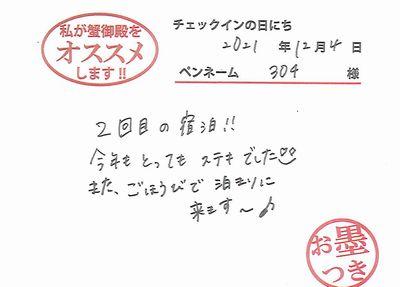 私が蟹御殿を
オススメ
します!!
チェックインの日にち
2021 年 12月 4 日
ペンネーム 304 様
2回目の宿泊!!
今年もとってもステキでした
また、ごほうびで 泊まりに
来ます〜♪
お墨
つき